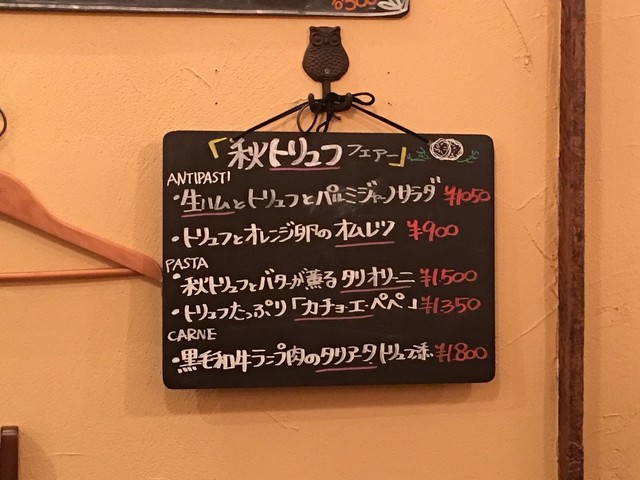 ¥500
「秋トリュフフェアー」
ANTIPASTI
・生ハムとトリュフとパルミジャーノサラダ ¥1050
・トリュフとオレンジ卵のオムレツ ¥900
PASTA
・秋トリュフとバターが薫るタリオリーニ ¥1500
・トリュフたっぷり「カチョ・エ・ペペ」 ¥1350
CARNE
・黒毛和牛ランプ肉のタリアータトリュフ添 ¥1800